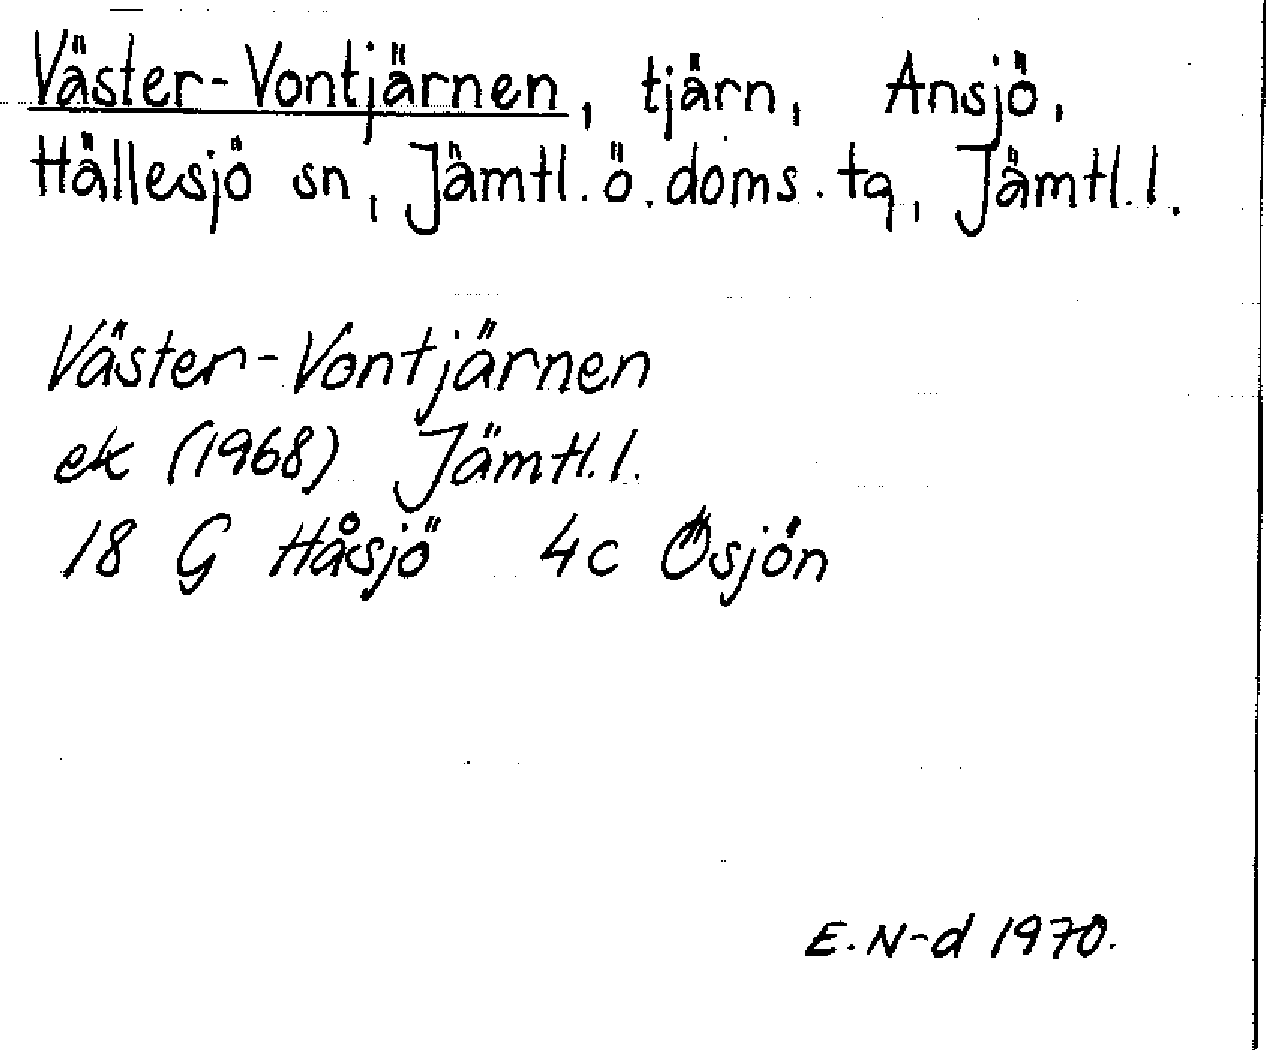 Väster-Vontjärnen, tjärn, Ansjö,
Hällesjö sn, Jämtl. ö. doms. tg, Jämtl. l.
Väster-Vontjärnen
ek (1968) Jämtl. l.
18 G Håsjö 4c Ösjön
E. N-d 1970.